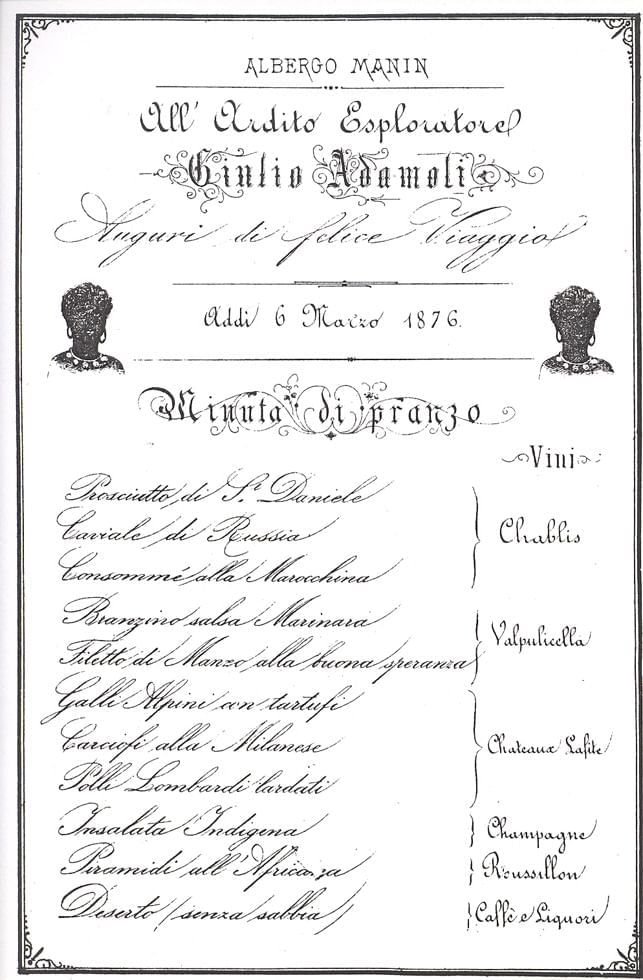 ALBERGO MANIN
All' Ardito Esploratore
Giulio Adamoli
Auguri di felice Viaggio
Addi 6 Marzo 1876.
Minuta di pranzo
Vini
Prosciutto di S. Daniele
Caviale di Russia
Consommé alla Marocchina
Chablis
Branzino salsa Marinara
Filetto di Manzo alla buona speranza
Valpulicella
Galli Alpini con tartufi
Carciofi alla Milanese
Polli Lombardi lardati
Chateaux Lafite
Insalata Indigena
Champagne
Piramidi all'Africana
Roussillon
Deserto (senza sabbia)
Caffè e Liquori